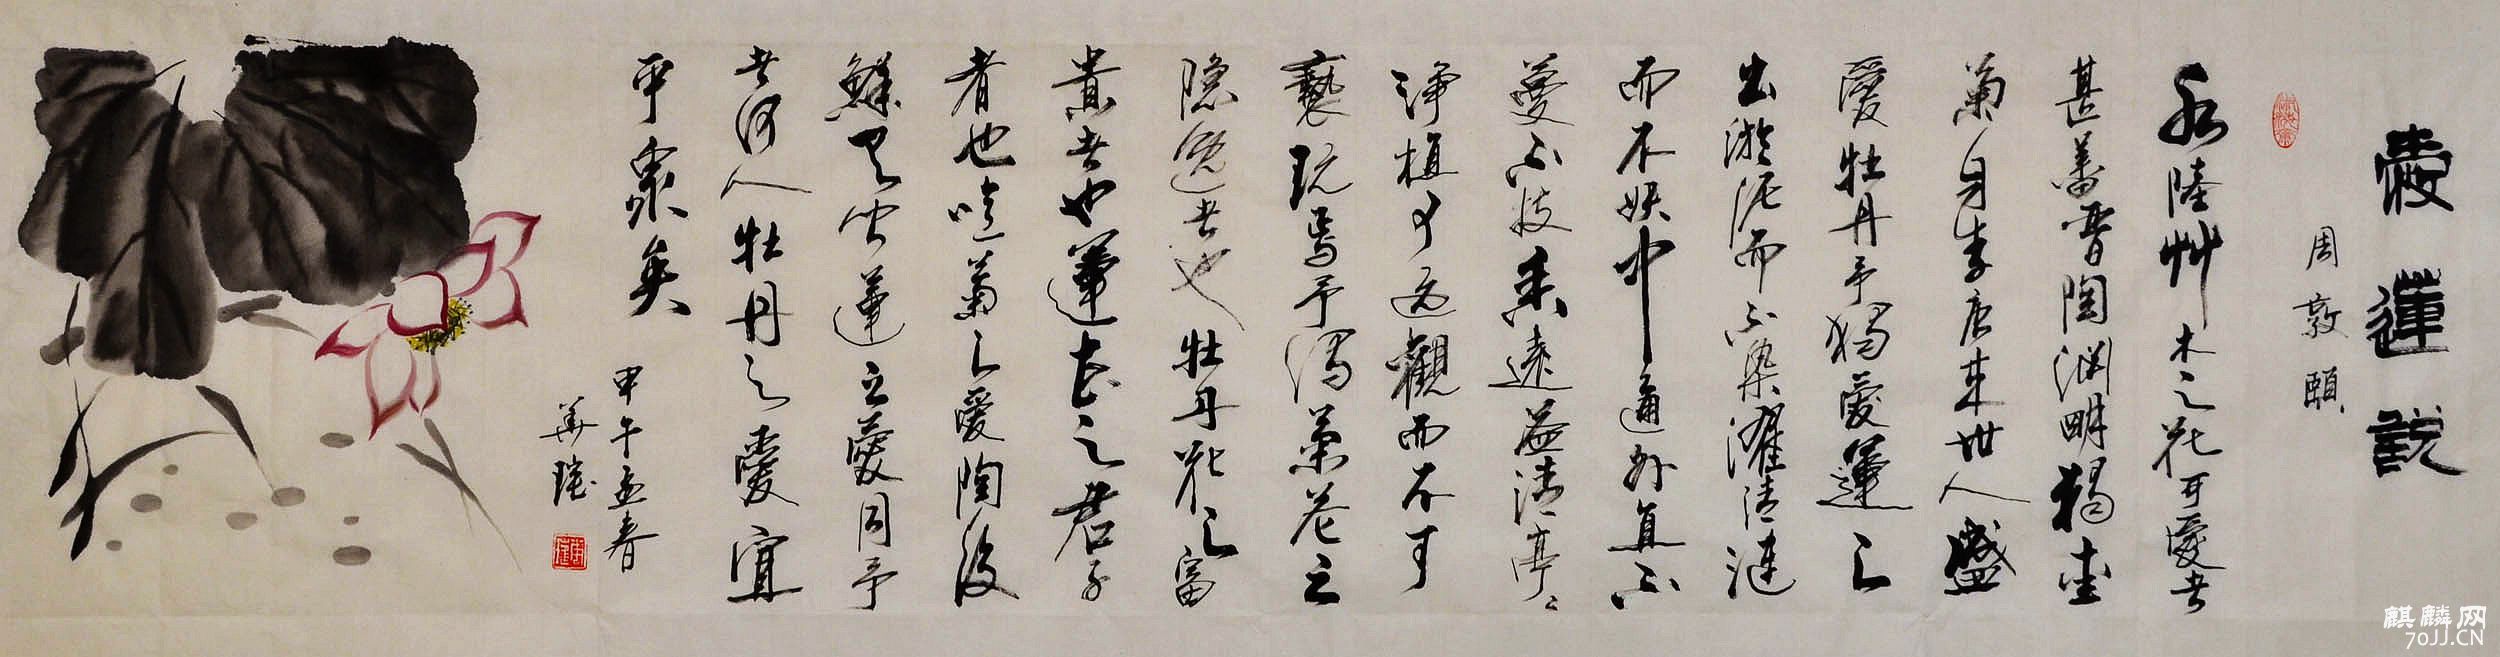 愛蓮説
周敦頤
水陸艸木之花可愛者
甚蕃晋陶渊明獨愛
菊自李唐来世人盛
愛牡丹予獨愛蓮之
出淤泥而不染濯清漣
而不妖中通外直不
蔓不枝香遠益清亭〻
淨植可遠觀而不可
褻玩焉予謂菊花之
隐逸者也牡丹花之富
貴者也蓮花之君子
者也噫菊之愛陶後
鮮有聞蓮之愛同予
者何人牡丹之愛宜
乎衆矣
甲午孟春
華
麒麟网
70JJ.CN